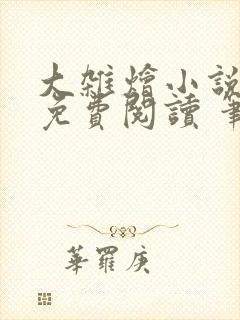 大雜燴小說
免費閱讀 筆
華羅庚